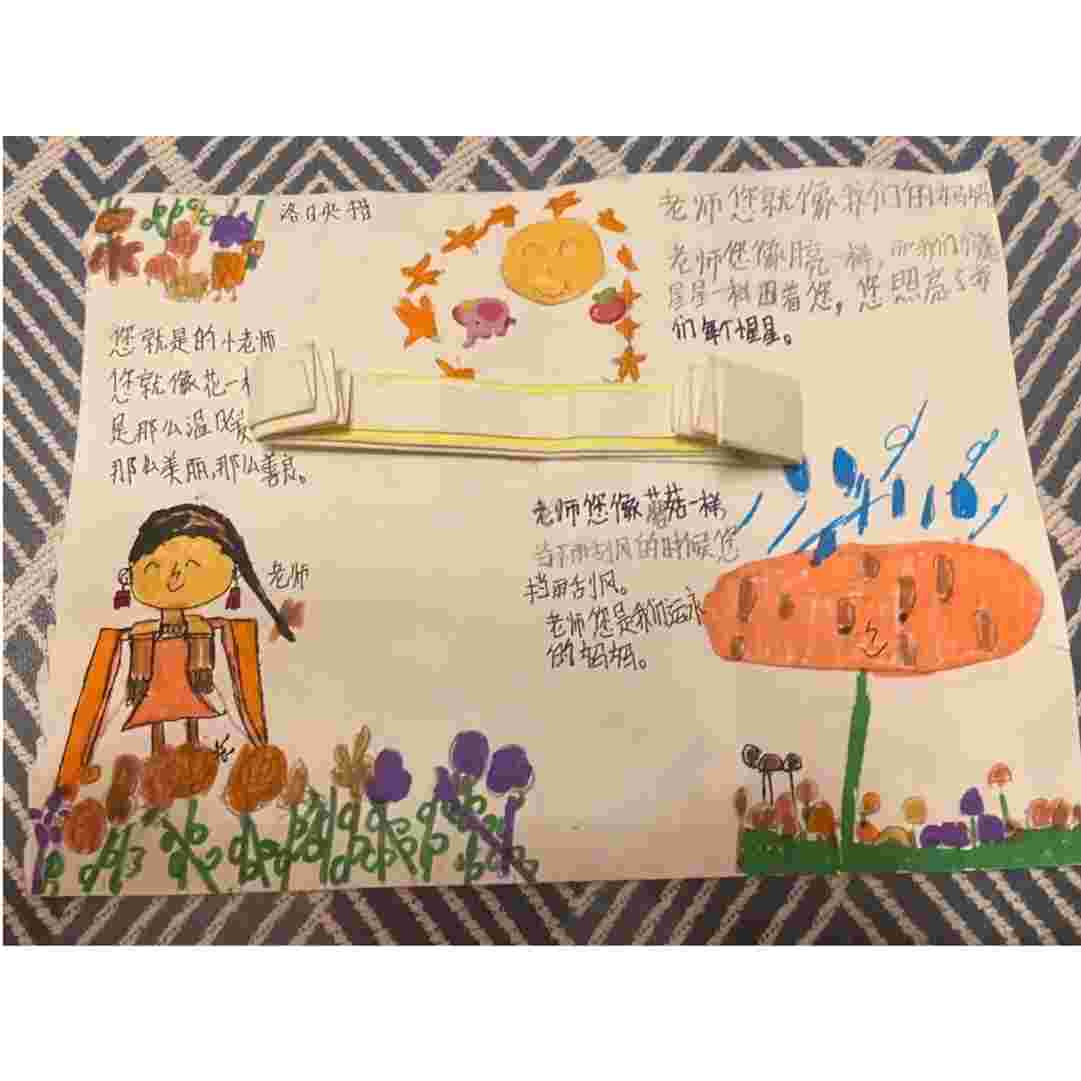 洛日央措
老师您就像我们的妈妈
老师您像月亮一样，
星星一样围着您，您照亮了我
们每个星星。
您就是的小老师
您就像花一
是那么温暖
那么美丽，那么善良。
老师
老师您像蘑菇一样
当下雨刮风的时候您
挡雨刮风。
老师您是我们
的妈妈。